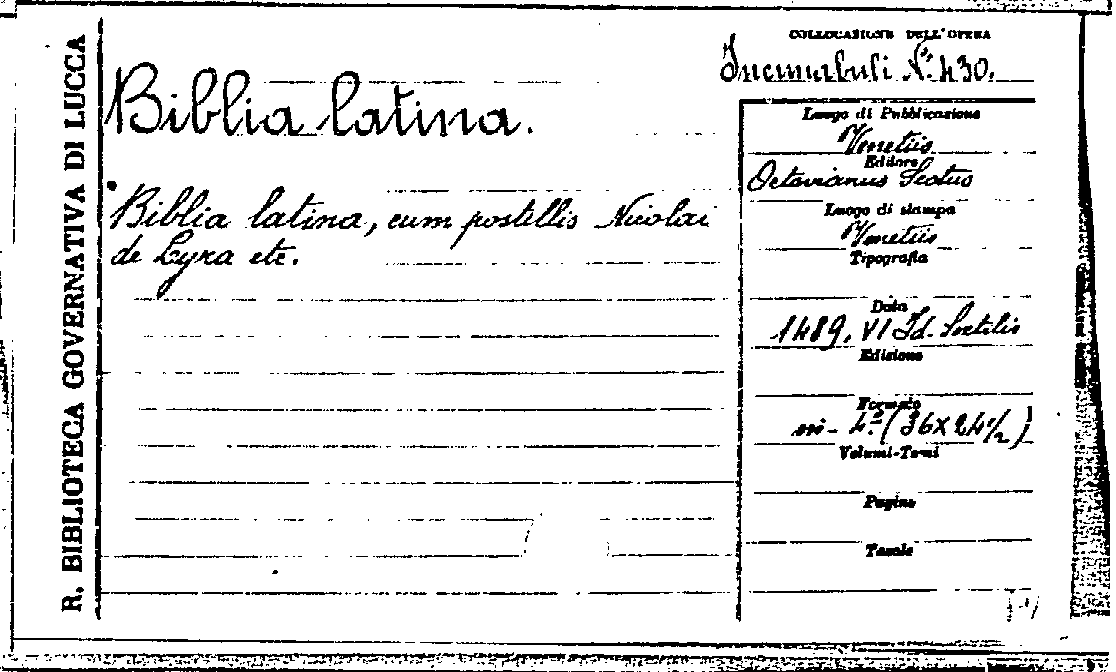 R. BIBLIOTECA GOVERNATIVA DI LUCCA
COLLOCAZIONE DELL'OPERA
Incunabuli N.° 430.
Biblia latina.
Biblia latina, cum postillis Nicolai
de Lyra etc.
Luogo di Pubblicazione
Venetiis
Editore
Octavianus Scotus
Luogo di stampa
Venetiis
Tipografia
Data
1489, VI Id. Sextilis
Edizione
Formato
in-4.° (36×24½)
Volumi-Tomi
Pagine
Tavole